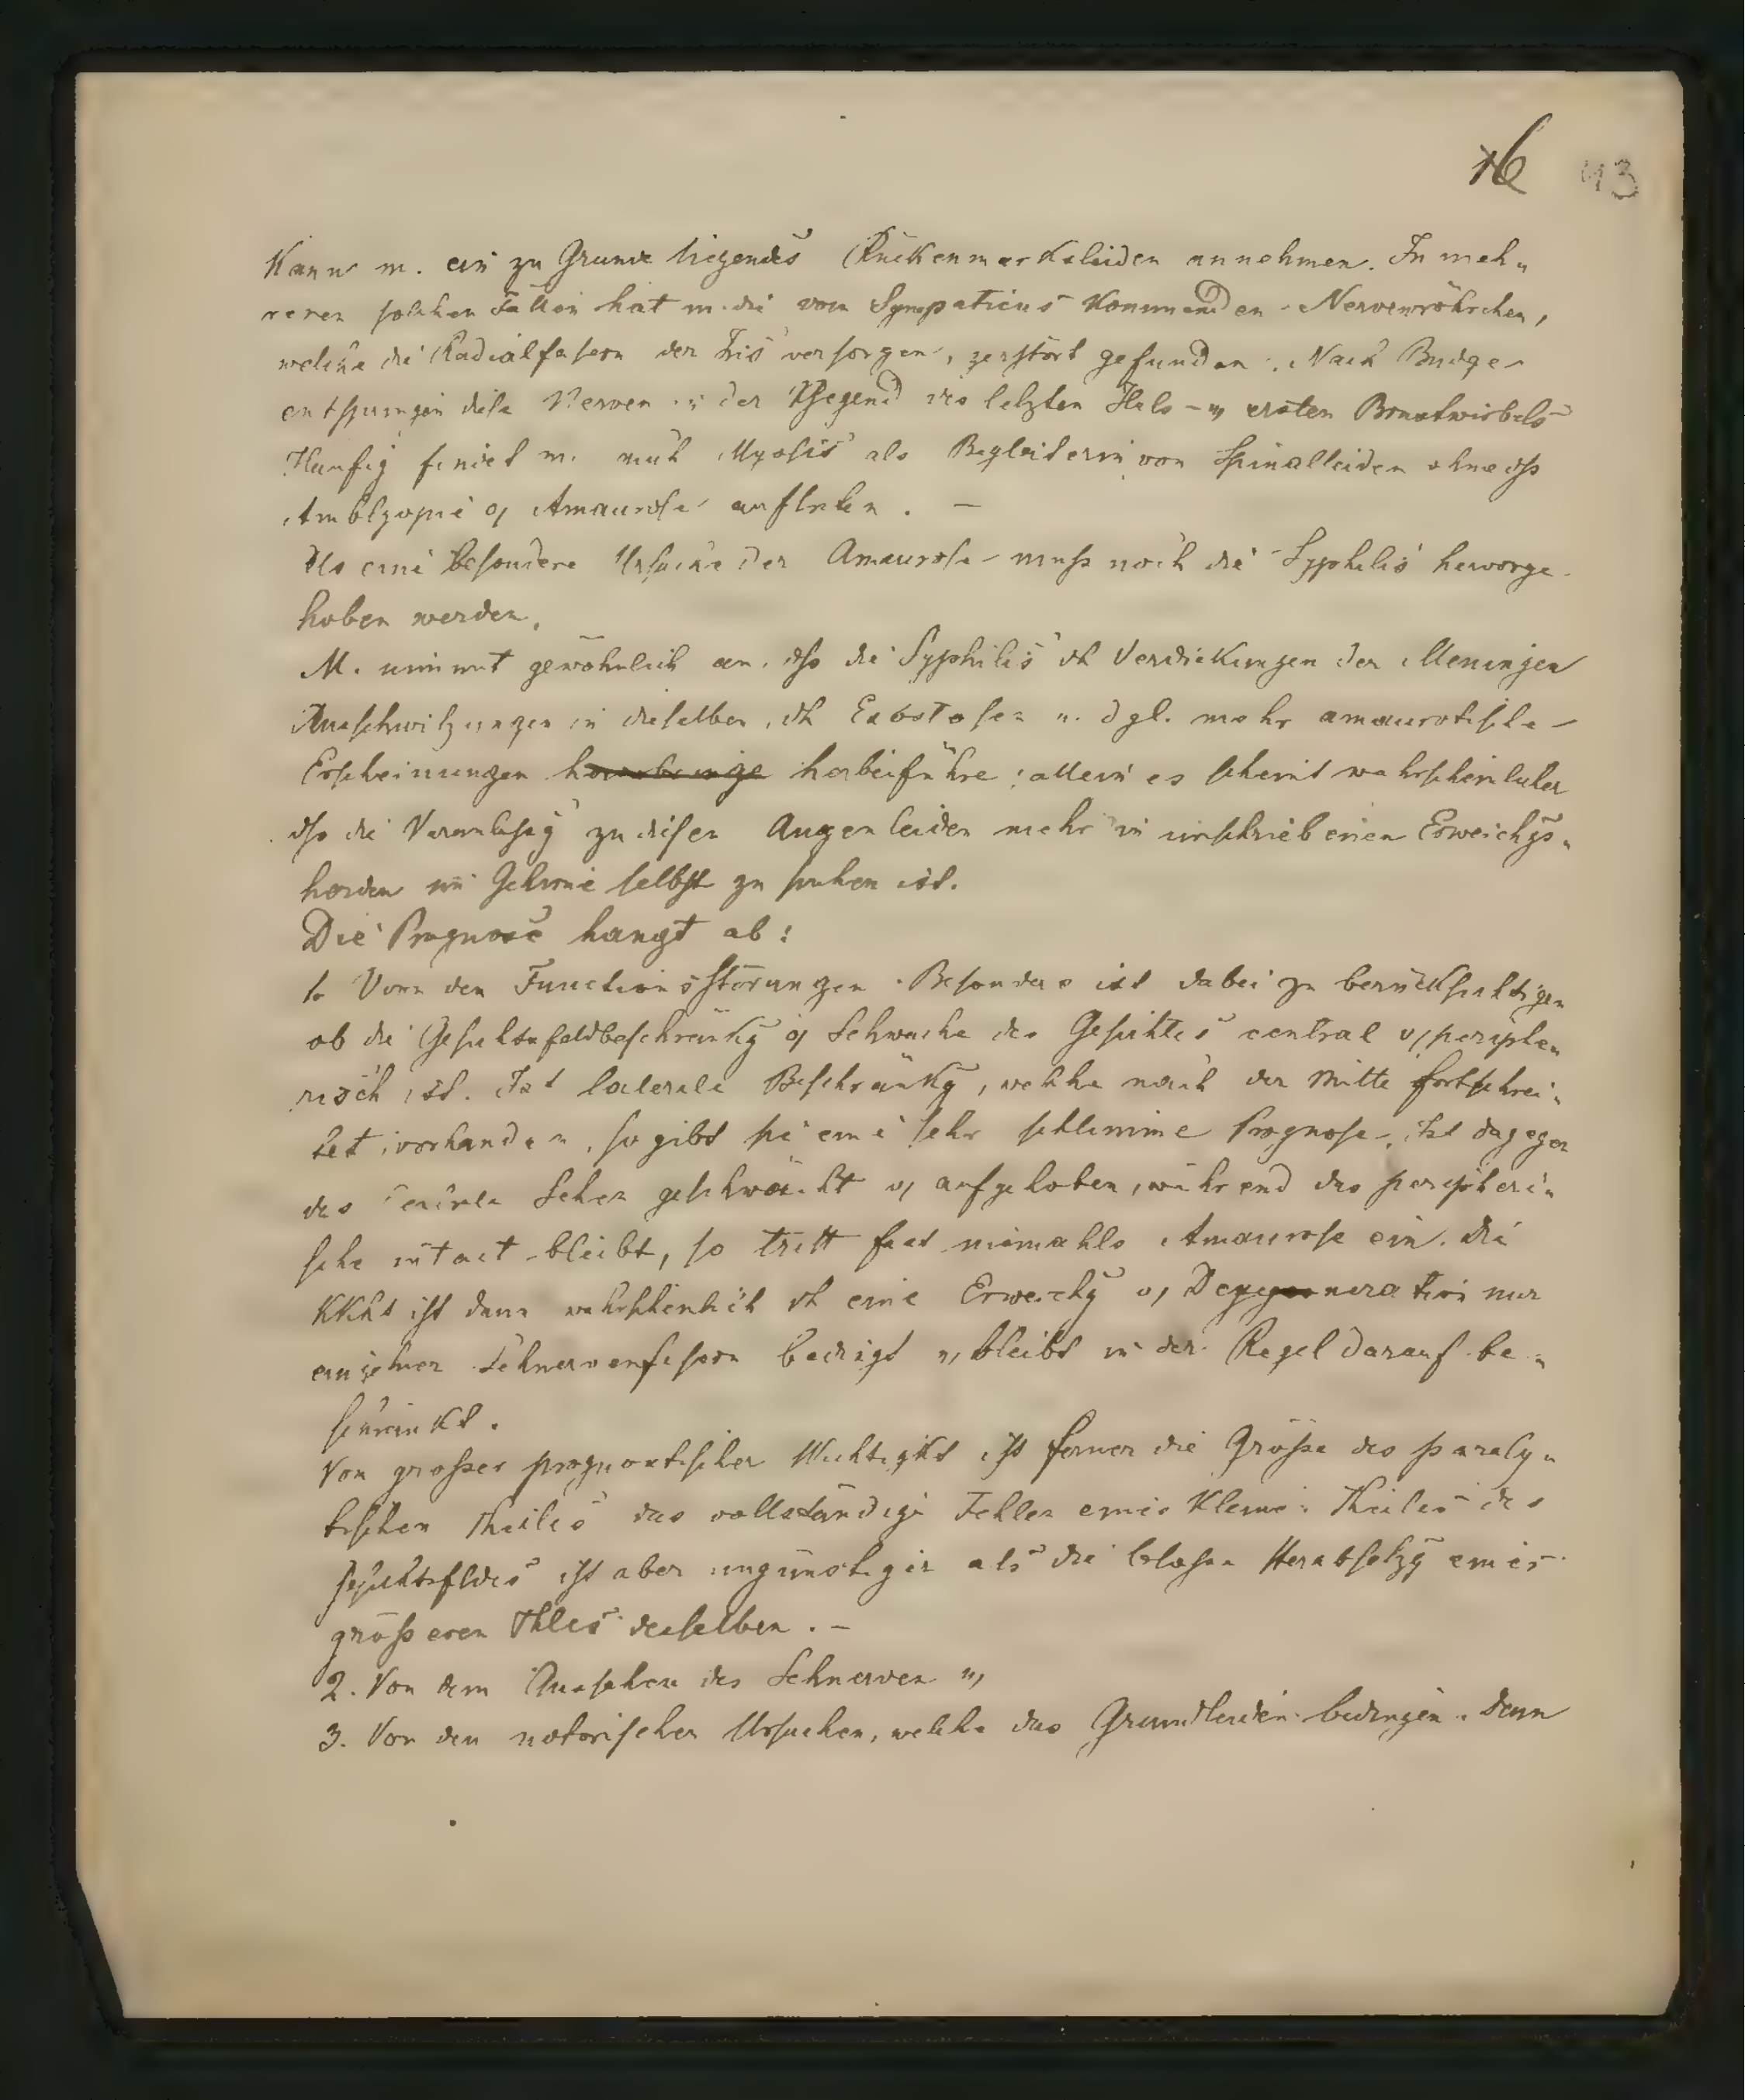 16 43
Kann m. ein zu Grunde liegendes Rückenmarksleiden annehmen. In meh-
reren solchen Fällen hat m. die vom Sympaticus kommenden Nervenröhrchen,
welche die Radialfasern der Iris versorgen, zerstört gefunden. Nach Budge
entspringen diese Nerven in der Gegend des letzten Hals- u, ersten Brustwirbels
Häufig findet m. auch Myosis als Begleiterin von Spinalleiden ohne dß
Amblyopie o, Amaurose auftreten. —
Als eine besondere Ursache der Amaurose muß noch die Syphilis hervorge-
hoben werden.
M. nimmt gewöhnlich an, dß die Syphilis dch Verdickungen der Meningen
Ausschwitzungen in dieselben, dch Exostosen u. dgl. mehr amaurotische
Erscheinungen herbeiführe; allein es scheint wahrscheinlicher
dß die Veranlaßg zu diesen Augenleiden mehr in umschriebenen Erweichgs-
herden im Gehirne selbst zu suchen ist.
Die Prognose hängt ab:
1. Von den Functionsstörungen. Besonders ist dabei zu berücksichtigen
ob die Gesichtsfeldbeschränkg o, Schwäche des Gesichtes central o, periphe-
risch ist. Ist laterale Beschränkg, welche nach der Mitte fortschrei-
tet, vorhanden, so gibt sie eine sehr schlimme Prognose. Ist dagegen
das centrale Sehen geschwächt o, aufgehoben, während das peripheri-
sche intact bleibt, so tritt fast niemahls Amaurose ein. Die
KKht ist dann wahrscheinlich dch eine Erweichg o, Degeneration nur
einzelner Sehnervenfasern bedingt u, bleibt in der Regel darauf be-
schränkt.
Von großer prognostischer Wichtigkt ist ferner die Größe des paraly-
tischen Theiles das vollständige Fehlen eines kleinen Theiles des
Gesichtsfldes ist aber ungünstiger als die bloße Herabsetzg eines
größeren Thles desselben. —
2. Von dem Aussehen des Sehnerven u,
3. Von den notorischen Ursachen, welche das Grundleiden bedingen. Denn